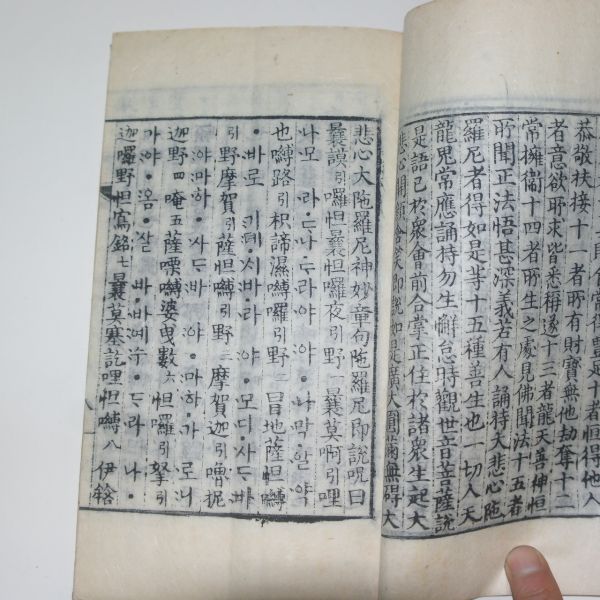 恭敬扶接十一者所有財寶無他劫奪十二
者意欲所求皆悉稱遂十三者龍天善神恒
常擁衛十四者所生之處見佛聞法十五者
所聞正法悟甚深義若有人誦持大悲心陁
羅尼者得如是等十五種善生也一切人天
龍鬼常應誦持勿生懈怠時觀世音菩薩說
是語已於衆會前合掌正住於諸衆生起大
悲心開顔含笑即說如是廣大圓滿無碍大
悲心大陁羅尼神妙章句陁羅尼即說呪曰
曩謨引囉怛曩怛囉夜引野一曩莫啊引哩
나모 라ᄃᆞ나 ᄃᆞ라야 야 나막 알 약
也嚩路引枳諦濕嚩囉引野二冒地薩怛嚩
바로 기뎨 시바라 야 모디 사ᄃᆞ바
引野摩賀引薩怛嚩引野三摩賀迦引嚕抳
야 마하 사ᄃᆞ바 야 마하 가 로니
迦野四唵五薩嘌嚩婆曳數六怛囉引拏引
가야 옴 살 바 바예수 ᄃᆞ라 나
迦囉野怛寫銘七曩莫塞訖哩怛嚩八伊